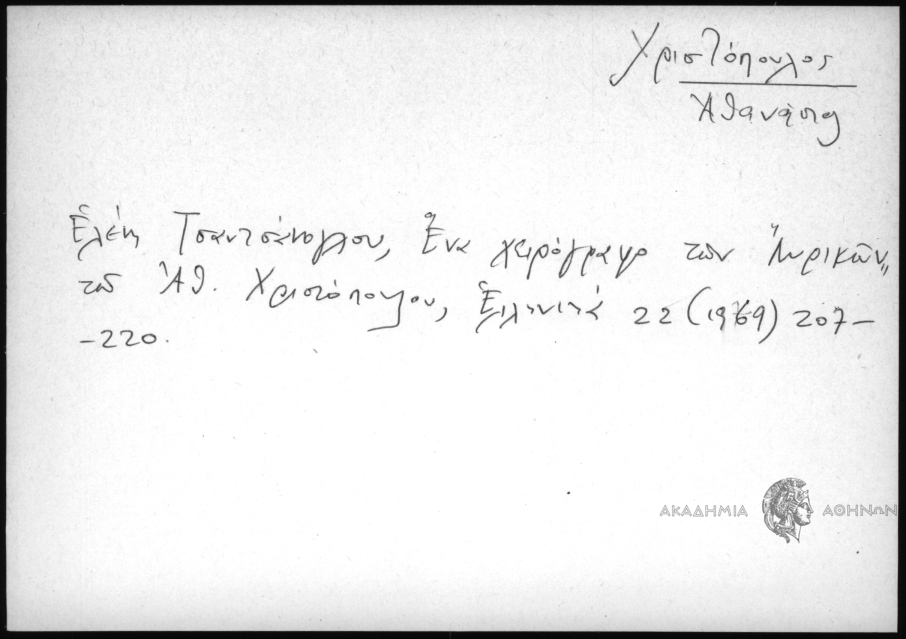 Χριστόπουλος
Ἀθανάσιος
Ἑλένη Τσαντσάνογλου, Ἕνα χειρόγραφο τῶν "Λυρικῶν"
τοῦ Ἀθ. Χριστόπουλου, Ἑλληνικά 22 (1969) 207-
-220.
ΑΚΑΔΗΜΙΑ ΑΘΗΝΩΝ